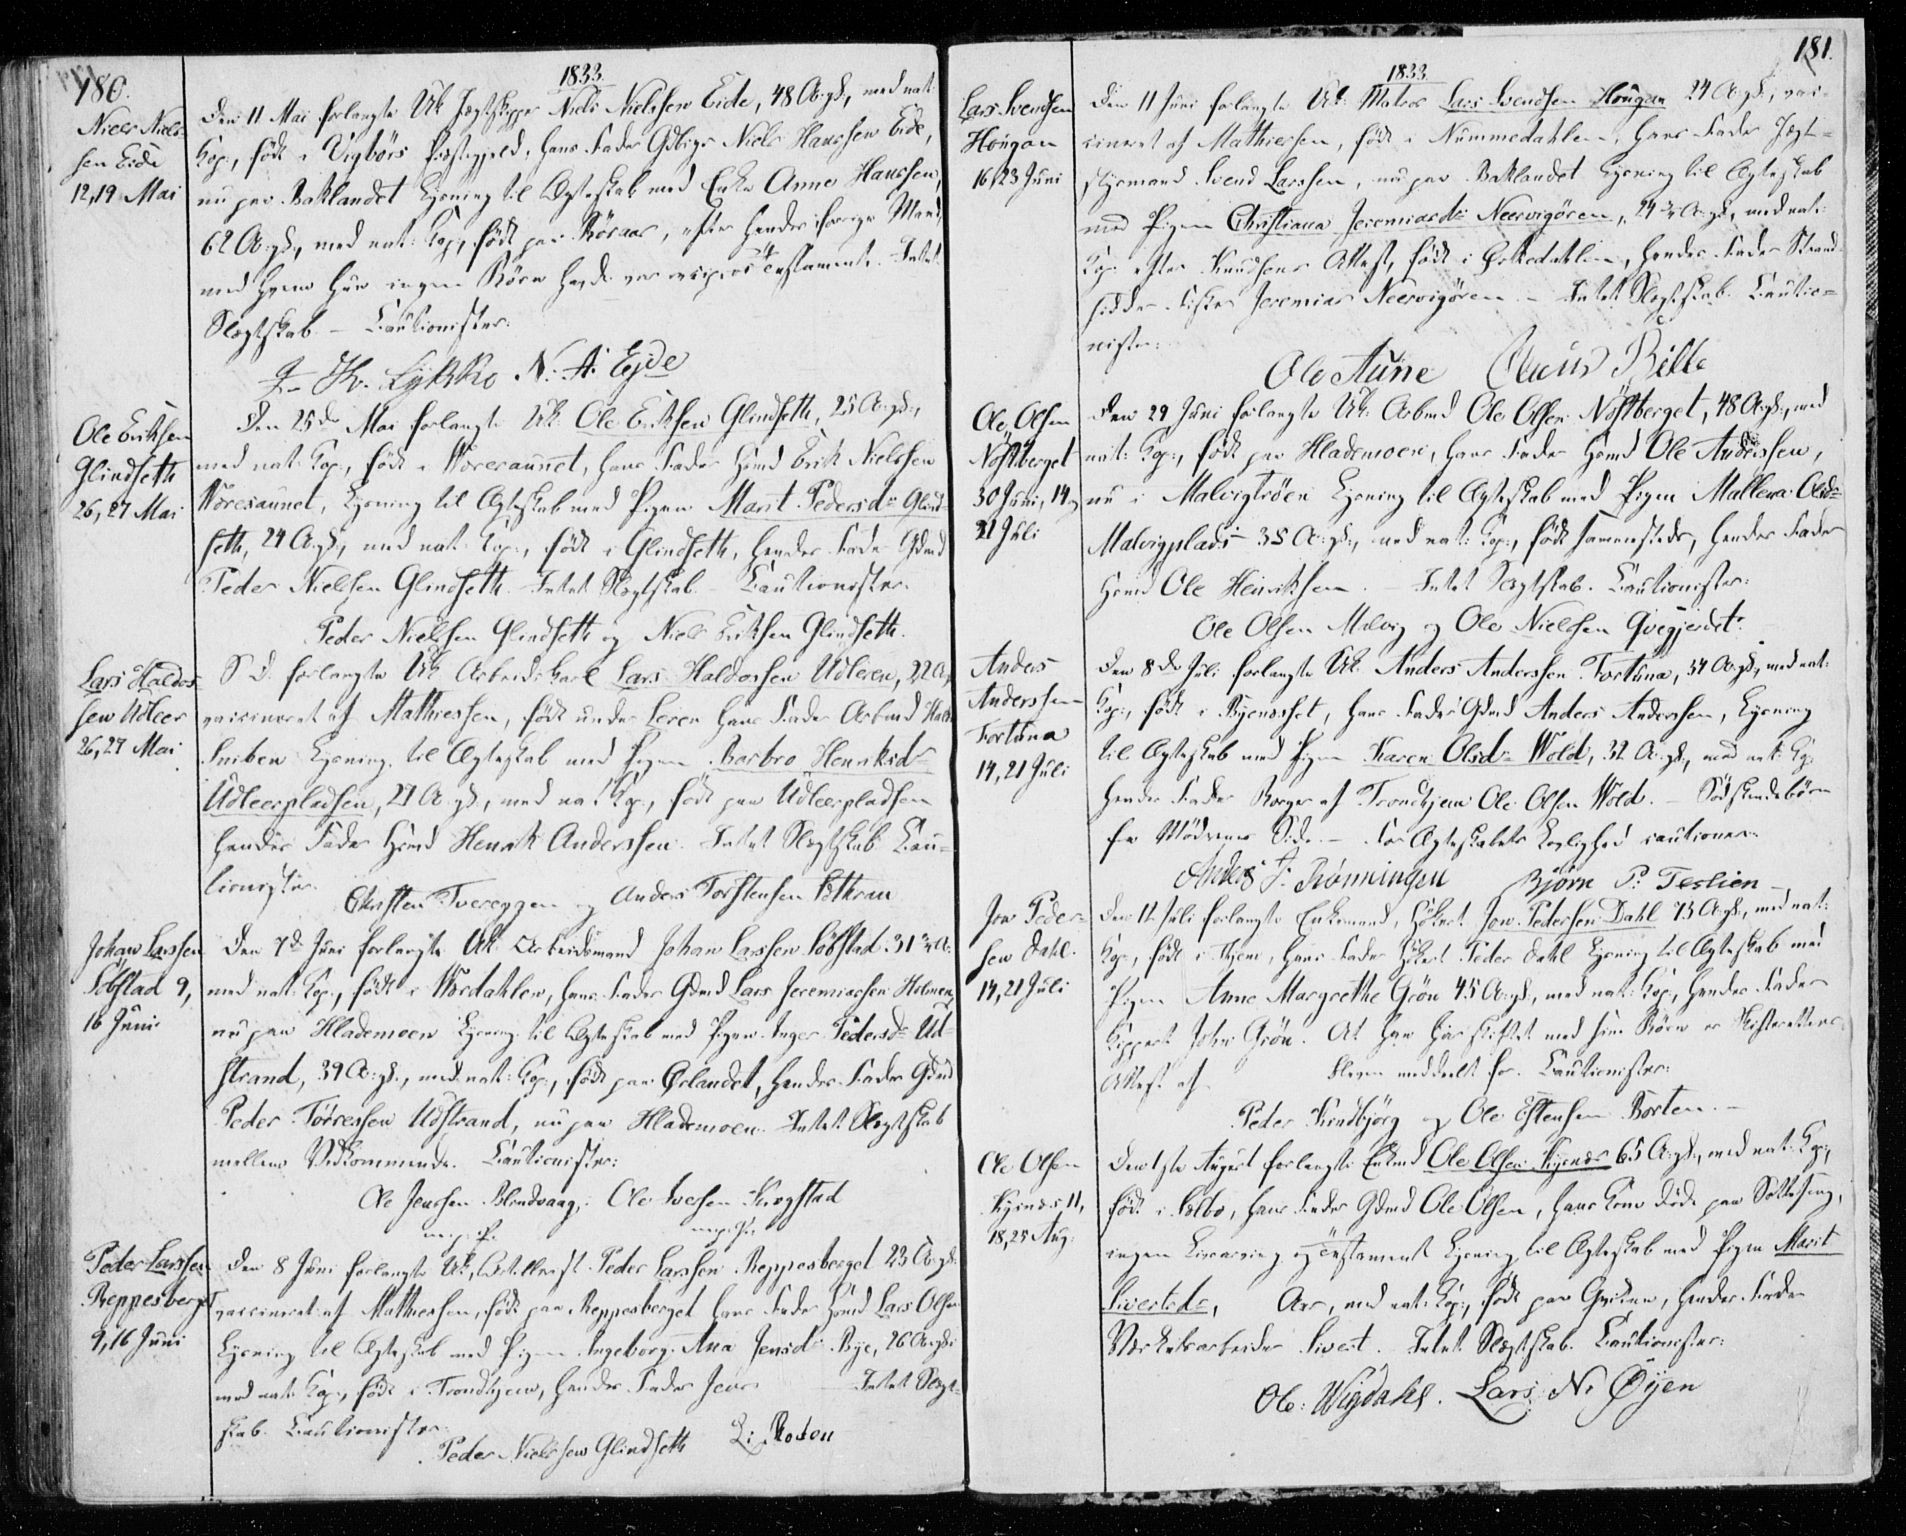 180.
1833.
Niels Niels-
sen Eide
12,19 Mai
Den 11 Mai forlangte Uk Jægtskipper Niels Nielssen Eide, 48 A: gl:, med nat:
Kop:, født i Vigbörs Præstegjeld, hans Fader Gdbrger Niels Hanssen Eide,
nu paa Baklandet Lysning til Ægteskab med Enke Anne Hanssen,
62 A: gl:, med nat: Kop:, født paa Röraas, efter hendes forrige Mand,
med hvem hun ingen Börn havde var reciproc Testamente. Intet
Slægtskab. – Cautionister:
Hr. Lykke N. A. Eide
Ole Eriksen
Glindseth
26,27 Mai
Den 25de Mai forlangte Uk: Ole Eriksen Glindseth, 25 A: gl:,
med nat: Kop:, født i Woresaunet, hans Fader Hsmd Erik Nielssen
Woresaunet, Lysning til Ægteskab med Pigen Marit Pedersdr Glind-
seth, 24 A: gl:, med nat: Kop:, født i Glindseth, hendes Fader Gdmd
Peder Nielsen Glindseth. Intet Slægtskab. – Cautionister:
Peder Nielsen Glindseth og Niels Eriksen Glindseth.
Lars Haldos-
sen Udleer
26,27 Mai
S. D. forlangte Uk Arbeidskarl Lars Haldossen Udleren, 22 A:,
vaccineret af Mathiessen, født under Leren hans Fader Arbmd
Lysning til Ægteskab med Pigen Barbro Henriksdr
Udleerpladsen, 27 A: gl:, med nat Kop:, født paa Udleerpladsen
hendes Fader Hsmd Henrik Anderssen. Intet Slægtskab. Cau-
tionister.
Christen Tvereggen og Anders Torstensen
Johan Larssen
Sobstad 9,
16 Juni
Den 7de Juni forlangte Uk: Arbeidsmand Johan Larssen Sobstad 31 3/4 A:
med nat: Kop:, født i Wærdahlen, hans Fader Gdmd Lars Jeremiassen Holmen,
nu paa Hlademoen Lysning til Ægteskab med Pigen Inger Pedersdr Ud-
strand, 39 A: gl:, med nat: Kop:, født paa Örlandet, hendes Fader Gdmd
Peder Törressen Udstrand, nu paa Hlademoen. Intet Slægtskab
mellem Vedkommende. Cautionister:
Ole Jenssen Blindvaag, Ole Ivessen Krogstad
m. p. P. m. p. P.
Peder Larssen
Reppesberget
9,16 Juni
Den 8 Juni forlangte Uk, Artillerist Peder Larssen Reppesberget 23 A: gl:
vaccineret af Mathiessen, født paa Reppesberget hans Fader Hsmd Lars Olsen
Lysning til Ægteskab med Pigen Ingeborg Ana Jensdr Bye, 26 A: gl:
med nat: Kop:, født i Trondhjem, hendes Fader Jens Intet Slægt-
skab. Cautionister:
Peder Nielssen Glindseth L: Roten
181.
1833.
Lars Svendsen
Hougan
16,23 Juni
Den 11 Juni forlangte Uk: Matros Lars Svendsen Hougan 24 A: gl:, vac-
cineret af Mathiessen, født i Nummedahlen, hans Fader Jægt-
styrmand Svend Larssen, nu paa Baklandet Lysning til Ægteskab
med Pigen Christiana Jeremiasdr Neervigören, 24 3/4 A: gl:, med nat:
Kop: efter Knudsens Attest, født i Örkedahlen, hendes Fader Strand-
sidder Fisker Jeremias Neervigören. – Intet Slægtskab. Cautio-
nister:
Ole Aune Claus Bille
Ole Olsen
Nöstberget
30 Juni, 14,
21 Juli
Den 29 Juni forlangte Uk: Arbmd Ole Olsen Nöstberget, 48 A: gl:, med
nat: Kop:, født paa Hlademoen, hans Fader Hsmd Ole Anderssen,
nu i Malvigtröen Lysning til Ægteskab med Pigen Mallena Olsdr
Malvigplads 35 A: gl:, med nat: Kop:, født sammesteds, hendes Fader
Hsmd Ole Henriksen. – Intet Slægtskab. Cautionister:
Ole Olsen Malvig og Ole Nielssen Qvegjerdet.
Anders
Anderssen
Fortuna
14,21 Juli
Den 8de Juli forlangte Uk: Anders Anderssen Fortuna, 34 A: gl:, med nat:
Kop:, født i Byenæsset, hans Fader Gdmd Anders Anderssen, Lysning
til Ægteskab med Pigen Karen Olsdr Wold, 32 A: gl:, med nat: Kop:
hendes Fader Borger af Trondhjem Ole Olsen Wold. – Södskendebörn
fra Mödrenes Side. – For Ægteskabets Lovlighed cautionere:
Anders J. Rönningen Björn P: Teslien –
Jon Peder-
sen Dahl.
14,21 Juli
Den 12 Juli forlangte Enkemand, Huker: Jon Pedersen Dahl 73 A: gl:, med nat:
Kop:, født i Hjem, hans Fader Huker: Peder Dahl Lysning til Ægteskab med
Pigen Anne Margrethe Grön 45 A: gl:, med nat: Kop:, hendes Fader
Kippert John Grön. At han har skiftet med sine Börn er Skifterettens
Attest af bleven meddelt for. Cautionister:
Peder Kindbjörg og Ole Estensen Borten. –
Ole Olsen
Kysnæs 11,
18,25 Aug:
Den 1ste August forlangte Enkmd Ole Olsen Kysnæs 65 A: gl:, med nat: Kop:,
født i Selbo, hans Fader Gdmd Ole Olsen, hans Kone døde paa
ingen Livarving og Testament Lysning til Ægteskab med Pigen Marit
Sivertsdr, Aar, med nat: Kop:, født paa hendes Fader
Værketsarbeider Sivert. Intet Slægtskab. Cautionister:
Ole: Wigdahl. Lars N: Öyen